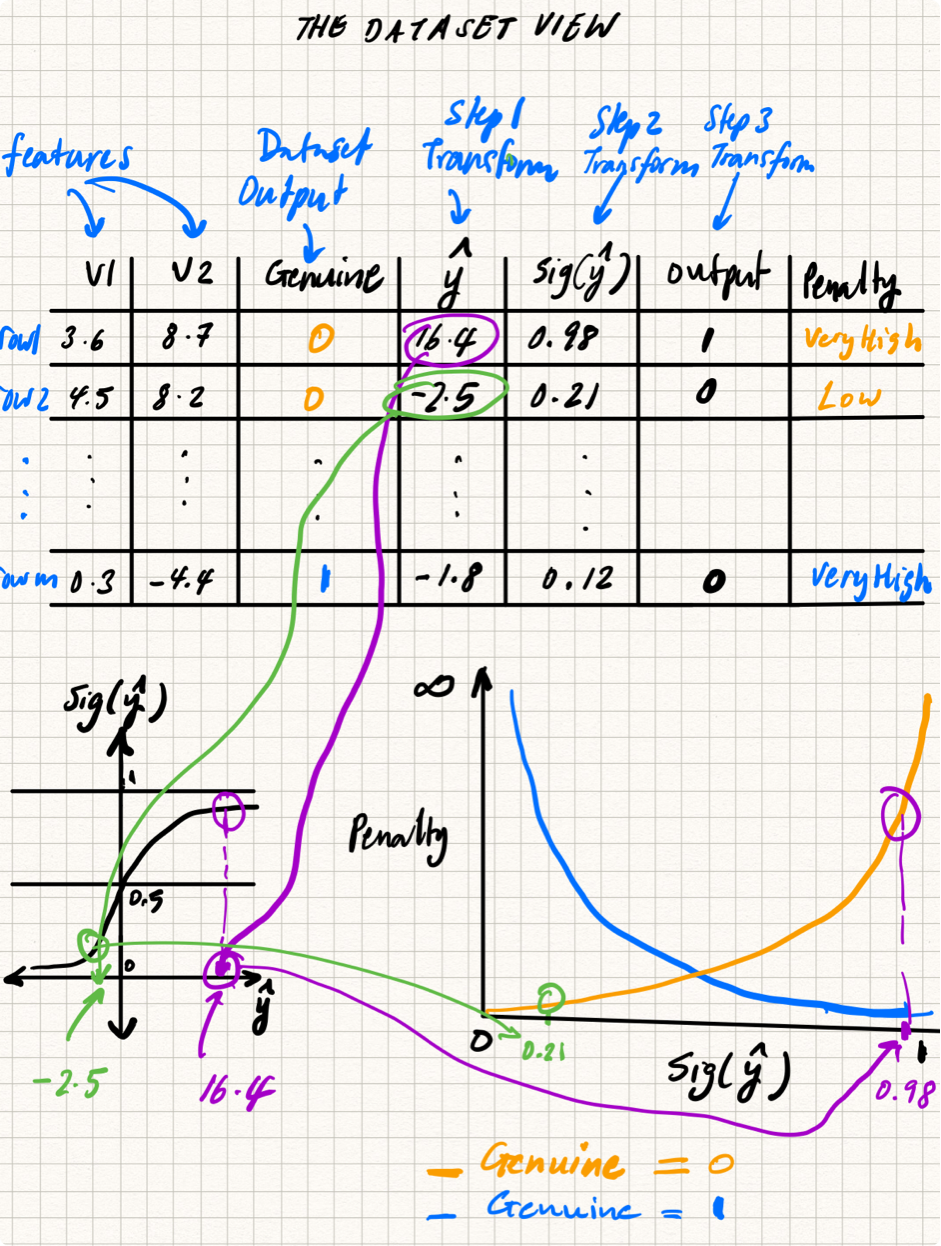 THE DATASET VIEW
features
Dataset
Output
Step 1
Transform
Step 2
Transform
Step 3
Transform
V1 V2 Genuine ŷ Sig(ŷ) output Penalty
row1 3.6 8.7 0 16.4 0.98 1 Very High
row2 4.5 8.2 0 -2.5 0.21 0 Low
row m 0.3 -4.4 1 -1.8 0.12 0 Very High
Sig(ŷ)
1
0.5
0
ŷ
-2.5
16.4
∞
Penalty
0
0.21
Sig(ŷ)
1
0.98
— Genuine = 0
— Genuine = 1